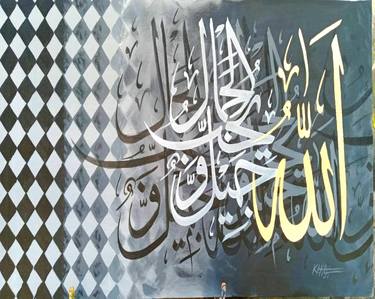 الله جميل و يحب الجمال